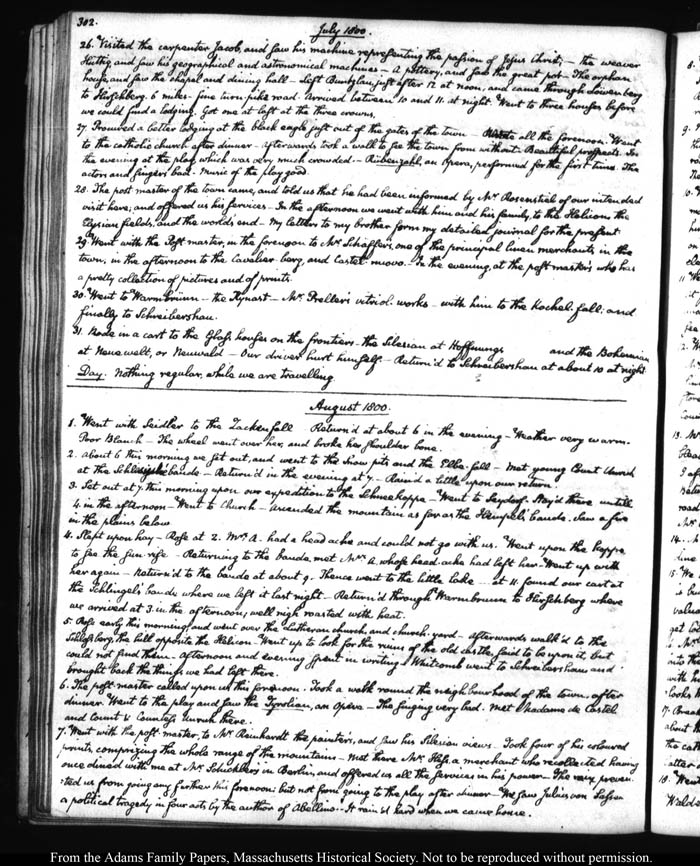 302.
July 1800.
26. Visited the carpenter Jacob, and saw his machine representing the passion of Jesus Christ; — the weaver
Hüttig and saw his geographical and astronomical machines — A pottery, and saw the great pot — The orphan
house, and saw the chapel and dining hall — Left Bunzlau just after 12 at noon, and came through Löwenberg
to Hirschberg. 6 miles — fine turnpike road. Arrived between 10 and 11. at night. Went to three houses before
we could find a lodging. Got one at last at the three crowns.
27. Procured a better lodging at the black eagle just out of the gates of the town — all the forenoon. Went
to the catholic church after dinner — afterwards took a walk to see the town from without. Beautiful prospects. In
the evening at the play which was very much crowded — Rübenzahl, an Opera, performed for the first time. The
actors and singers bad. Music of the play good.
28. The post master of the town came, and told us that he had been informed by Mr. Rosenstiel of our intended
visit here, and offered us his services — In the afternoon we went with him and his family, to the Helicon, the
Elysian fields, and the world's end — My letters to my brother form my detailed journal for the present
29. Went with the Post master, in the forenoon to Mr. Schaffers, one of the principal linen merchants, in the
town, in the afternoon to the Cavalier-berg, and Castel-nuovo. — In the evening, at the post masters who has
a pretty collection of pictures and of prints.
30. Went to Warmbrünn — the Kynast — Mr. Preller's vitriol-works — with him to the Kochel-fall: and
finally to Schreibershau.
31. Rode in a cart to the Glass houses on the frontiers — the Silesian at Hoffnungs and the Bohemian
at Neuewelt, or Neuwald — Our driver hurt himself — Return'd to Schreibershau at about 10 at night
Day. Nothing regular, while we are travelling.
August 1800.
1. Went with Seidler to the Zackenfall Return'd at about 6 in the evening — Weather very warm.
Poor Blanch — The wheel went over her, and broke her shoulder bone.
2. About 6 this morning we set out, and went to the Snow pits and the Elbe-fall — Met young Count
at the Schlesische baude — Return'd in the evening at 7 — Rain'd a little upon our return.
3. Set out at 7. this morning upon our expedition to the Schneekoppe — Went to Seydorf. Stay'd there untill
4. in the afternoon — Went to Church — ascended the mountain as far as the Hempel's baude. Saw a fire
in the plains below
4. Slept upon hay — Rose at 2. Mrs. A. had a head ache and could not go with us. Went upon the koppe
to see the sun rise — Returning to the baude, met Mrs. A. whose head-ache had left her — Went up with
her again — Return'd to the baude at about 9. Thence went to the little lake — at 11. found our cart at
the Schlingel's baude where we left it last night — Return'd through Warmbrunn to Hirschberg where
we arrived at 3 in the afternoon, well nigh roasted with heat.
5. Rose early this morning and went over the Lutheran church, and church-yard — afterwards walk'd to the
Schlossberg, the hill opposite the Helicon. Went up to look for the ruins of the old castle, said to be upon it, but
could not find them — Afternoon and evening spent in writing — Whitcomb went to Schreibershau and
brought back the things we had left there.
6. The post-master called upon us this forenoon. Took a walk round the neighbourhood of the town, after
dinner. Went to the play and saw the Tyrolian, an Opera — The singing very bad. Met Madame de Castel
and Count & Countess Unruh there.
7. Went with the post-master, to Mr. Reinhardt the painter, and saw his Silesian views. Took four of his coloured
prints, comprizing the whole range of the mountains — Met there Mr. Hess, a merchant who recollected having
once dined with me at Mr. Schickler's in Berlin, and offered us all the services in his power — The rain preven
ted us from going any further this forenoon: but not from going to the play after dinner — We saw Julius von Sassen
a political tragedy in four acts by the author of Abellino — It rain'd hard when we came home.
From the Adams Family Papers, Massachusetts Historical Society. Not to be reproduced without permission.